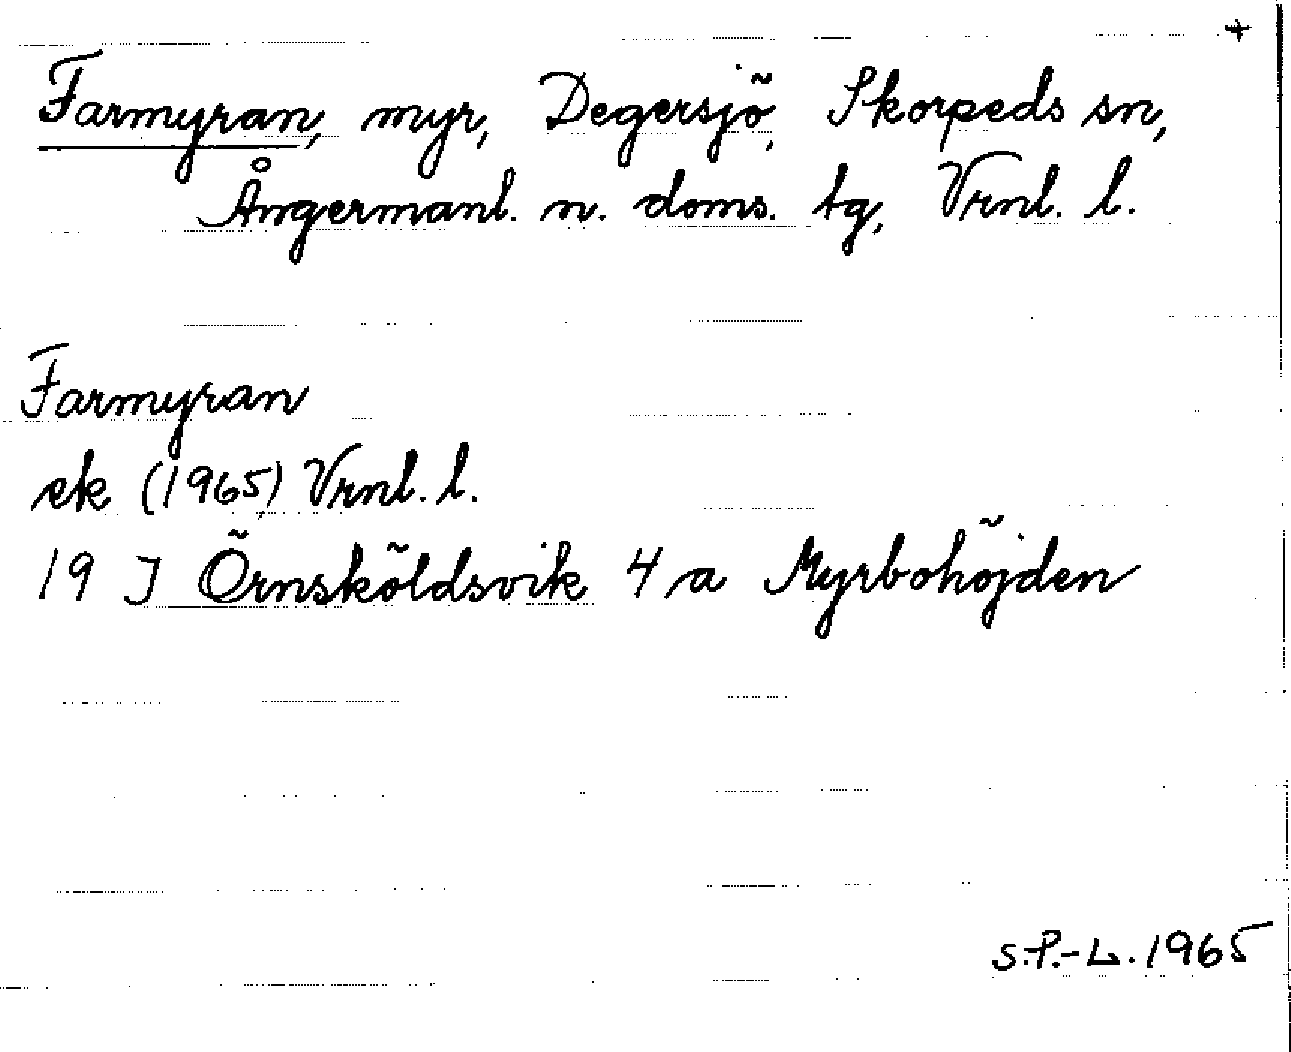 +
Farmyran, myr, Degersjö, Skorpeds sn,
Ångermanl. n. doms. tg, Vrnl. l.
Farmyran
ek (1965) Vrnl. l.
19 J Örnsköldsvik 4 a Myrbohöjden
S.P.-L. 1965